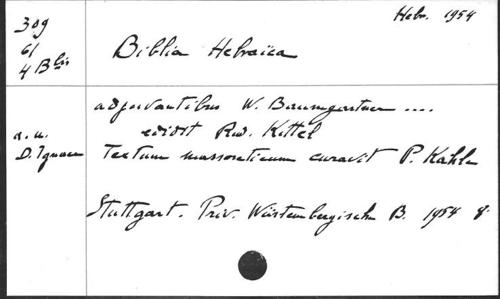 Hebr. 1954
309
61
4 Bbis
Biblia Hebraica
adjuvantibus W. Baumgartner ....
edidit Rud. Kittel
D. Ignace
Textum massoreticum curavit P. Kahle
Stuttgart. Priv. Würstembergisch B. 1954 8°